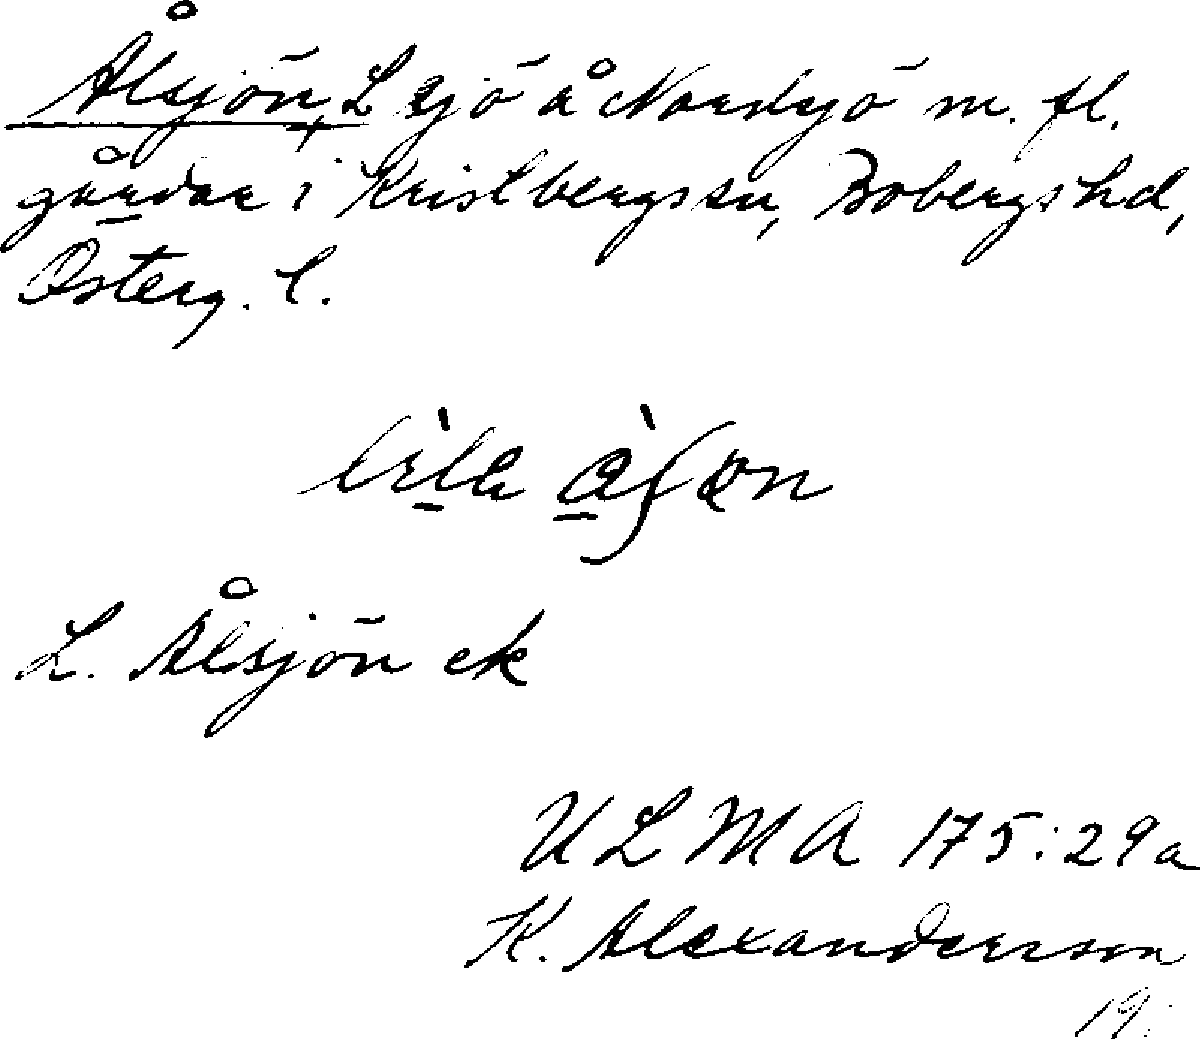 Ålsjön, L sjö å Nordsjö m. fl.
gårdar i Kristbergs sn, Bobergs hd,
Österg. l.
L. Ålsjön ek
ULMA 175:29a
K. Alexanderson